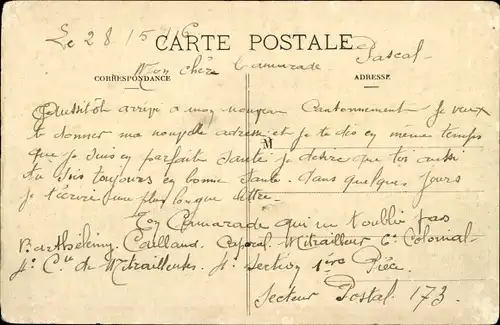 Le 28/5/16
CARTE POSTALE
Pascal
Mon chère Camarade
CORRESPONDANCE
ADRESSE
Aussitôt arrivé a mon nouveau Cantonnement Je veux
te donner ma nouvelle adresse et je te dis en même temps
que je suis en parfaite santé je désire que toi aussi
tu sois toujours en bonne santé. dans quelques jours
je t'écrirai une plus longue lettre.
M
Ton Camarade qui ne t'oublie pas
Barthélémy Cailland. Caporal. Mitrailleur 6e Colonial
4e Cie de Mitrailleuses. 4e Section 1ère Pièce.
Secteur Postal. 173.